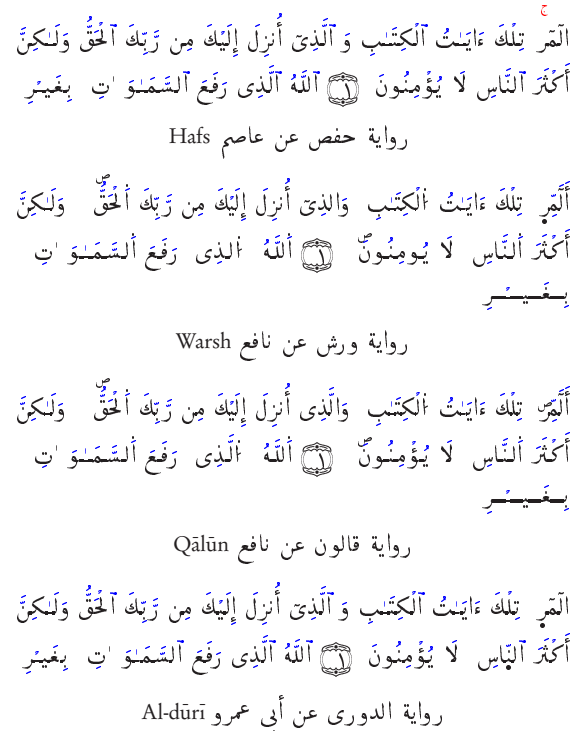 الٓمٓر ۚ تِلْكَ ءَايَـٰتُ ٱلْكِتَـٰبِ وَٱلَّذِىٓ أُنزِلَ إِلَيْكَ مِن رَّبِّكَ ٱلْحَقُّ وَلَـٰكِنَّ
أَكْثَرَ ٱلنَّاسِ لَا يُؤْمِنُونَ ١ ٱللَّهُ ٱلَّذِى رَفَعَ ٱلسَّمَـٰوَٰتِ بِغَيْرِ
رواية حفص عن عاصم Hafs
أَلَٓمِّٓر تِلْكَ ءَايَـٰتُ اُ۬لْكِتَـٰبِ وَالذِىٓ أُنزِلَ إِلَيْكَ مِن رَّبِّكَ اَ۬لْحَقُّۖ وَلَـٰكِنَّ
أَكْثَرَ اَ۬لنَّاسِ لَا يُومِنُونَۖ ١ اَ۬للَّهُ اُ۬لذِى رَفَعَ اَ۬لسَّمَـٰوَٰتِ
بِغَيْرِ
رواية ورش عن نافع Warsh
أَلَٓمِّٓرۖ تِلْكَ ءَايَـٰتُ اُ۬لْكِتَـٰبِ وَالَّذِى أُنزِلَ إِلَيْكَ مِن رَّبِّكَ اَ۬لْحَقُّۖ وَلَـٰكِنَّ
أَكْثَرَ اَ۬لنَّاسِ لَا يُؤْمِنُونَۖ ١ اَ۬للَّهُ اُ۬لَّذِى رَفَعَ اَ۬لسَّمَـٰوَٰتِ
بِغَيْرِ
رواية قالون عن نافع Qālūn
الٓمٓر تِلْكَ ءَايَـٰتُ ٱلْكِتَـٰبِ وَٱلَّذِىٓ أُنزِلَ إِلَيْكَ مِن رَّبِّكَ ٱلْحَقُّ وَلَـٰكِنَّ
أَكْثَرَ ٱلنَّاسِ لَا يُؤْمِنُونَ ١ ٱللَّهُ ٱلَّذِى رَفَعَ ٱلسَّمَـٰوَٰتِ بِغَيْرِ
رواية الدورى عن أبي عمرو Al-dūrī